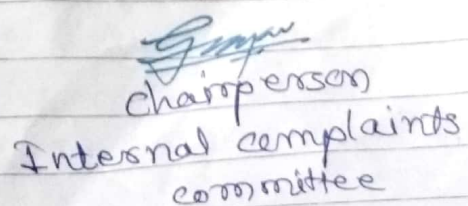 Chairperson
Internal complaints
committee